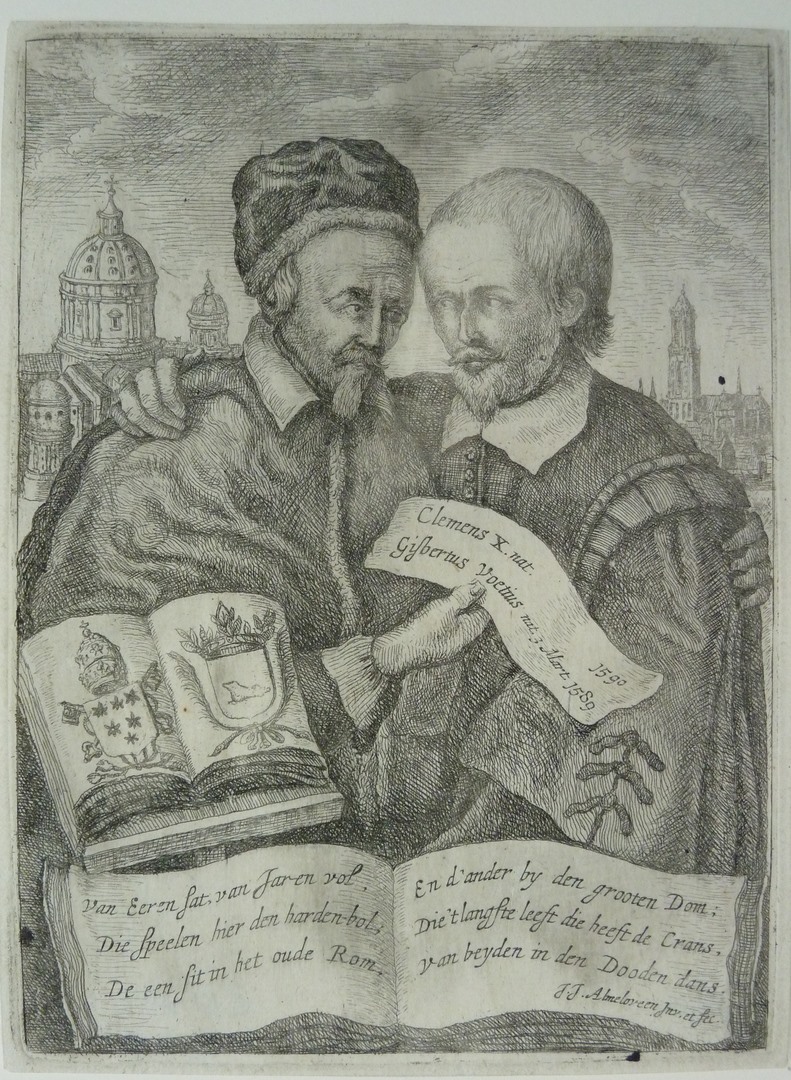 Clemens X. nat.
1590
Gisbertus Voetius nat. 3. Mart. 1589.
Van Eeren sat, van Jaren vol,
Die speelen hier den harden-bol;
De een sit in het oude Rom,
En d'ander by den grooten Dom;
Die't langste leeft die heeft de Crans,
Van beyden in den Dooden dans.
J.J. Almeloveen Jnv. et fec.